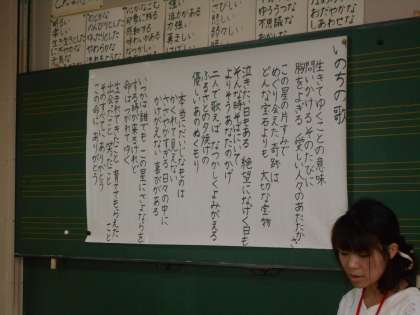 おだやかな
しあわせな
ゆううつな
不思議な
いのちの歌
生きてゆくことの意味
問いかけるそのたびに
胸をよぎる 愛しい人々のあたたかさ
この星の片すみで
めぐり会えた奇跡は
どんな宝石よりも 大切な宝物
泣きたい日もある 絶望になげく日も
そんな時そばにいて
よりそうあなたのかげ
二人で歌えば なつかしくよみがえる
ふるさとの夕焼けの
優しいあのぬくもり
本当にだいじなものは
かくれて見えない
ささやかすぎる日々の中に
かけがえない喜びがある
いつかは誰でも この星にさよならを
する時が来るけれど
命はつがれてゆく
生まれてきたこと 育ててもらえたこと
出会ったこと 笑ったこと
そのすべてに ありがとう
この命に ありがとう